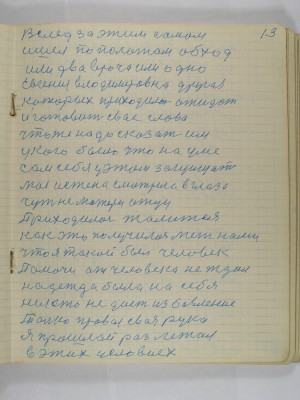 13
Вслед за этим самом
ишел по полотам обход
или два врача или одно
Евгения владимировна другая
которых приходило ожидат
и готоват свае слова
что ж надо сказат им
у кого было што на уме
сам себя у этом защищат
моя истена смотрила в глаза
чут не матери отцу
Приходилоя
как это получилоя меж нами
что я такой был человек
Помочи от человека не ждал
надежда была на себя
никто не дает избовление
Толко провая своя рука
я прошлой раз летал
в этих условиех